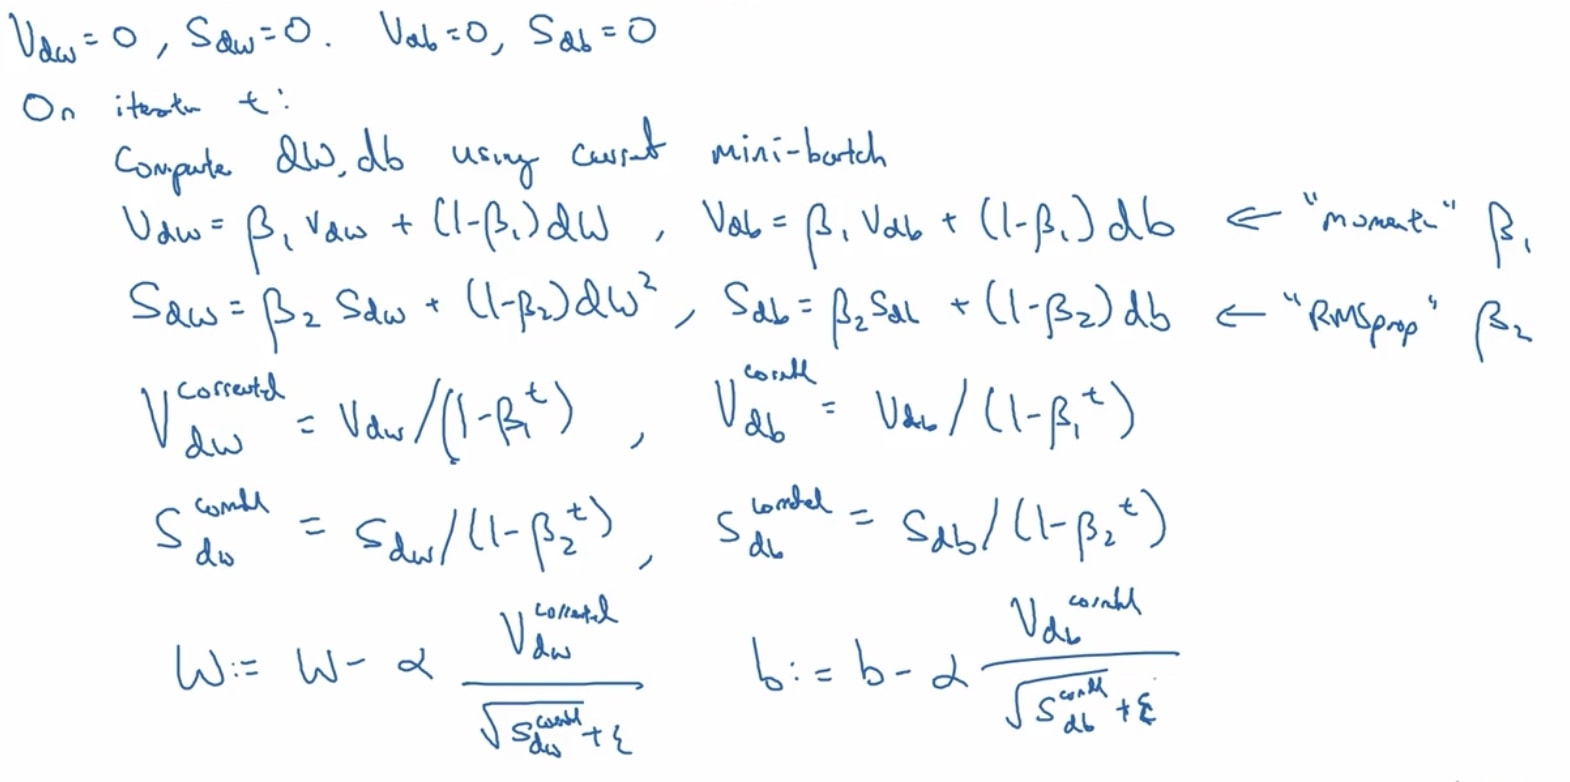 V_dw = 0, S_dw = 0. V_db = 0, S_db = 0
On iteratn t:
Compute dW, db using current mini-batch
V_dw = β_1 V_dw + (1-β_1) dW, V_db = β_1 V_db + (1-β_1) db ← "momentu" β_1
S_dw = β_2 S_dw + (1-β_2) dW^2, S_db = β_2 S_db + (1-β_2) db ← "RMSprop" β_2
V_dw^corrected = V_dw/(1-β_1^t), V_db^corrected = V_db/(1-β_1^t)
S_dw^corrected = S_dw/(1-β_2^t), S_db^corrected = S_db/(1-β_2^t)
W := W - α V_dw^corrected / (√S_dw^corrected + ε) b := b - α V_db^corrected / (√S_db^corrected + ε)